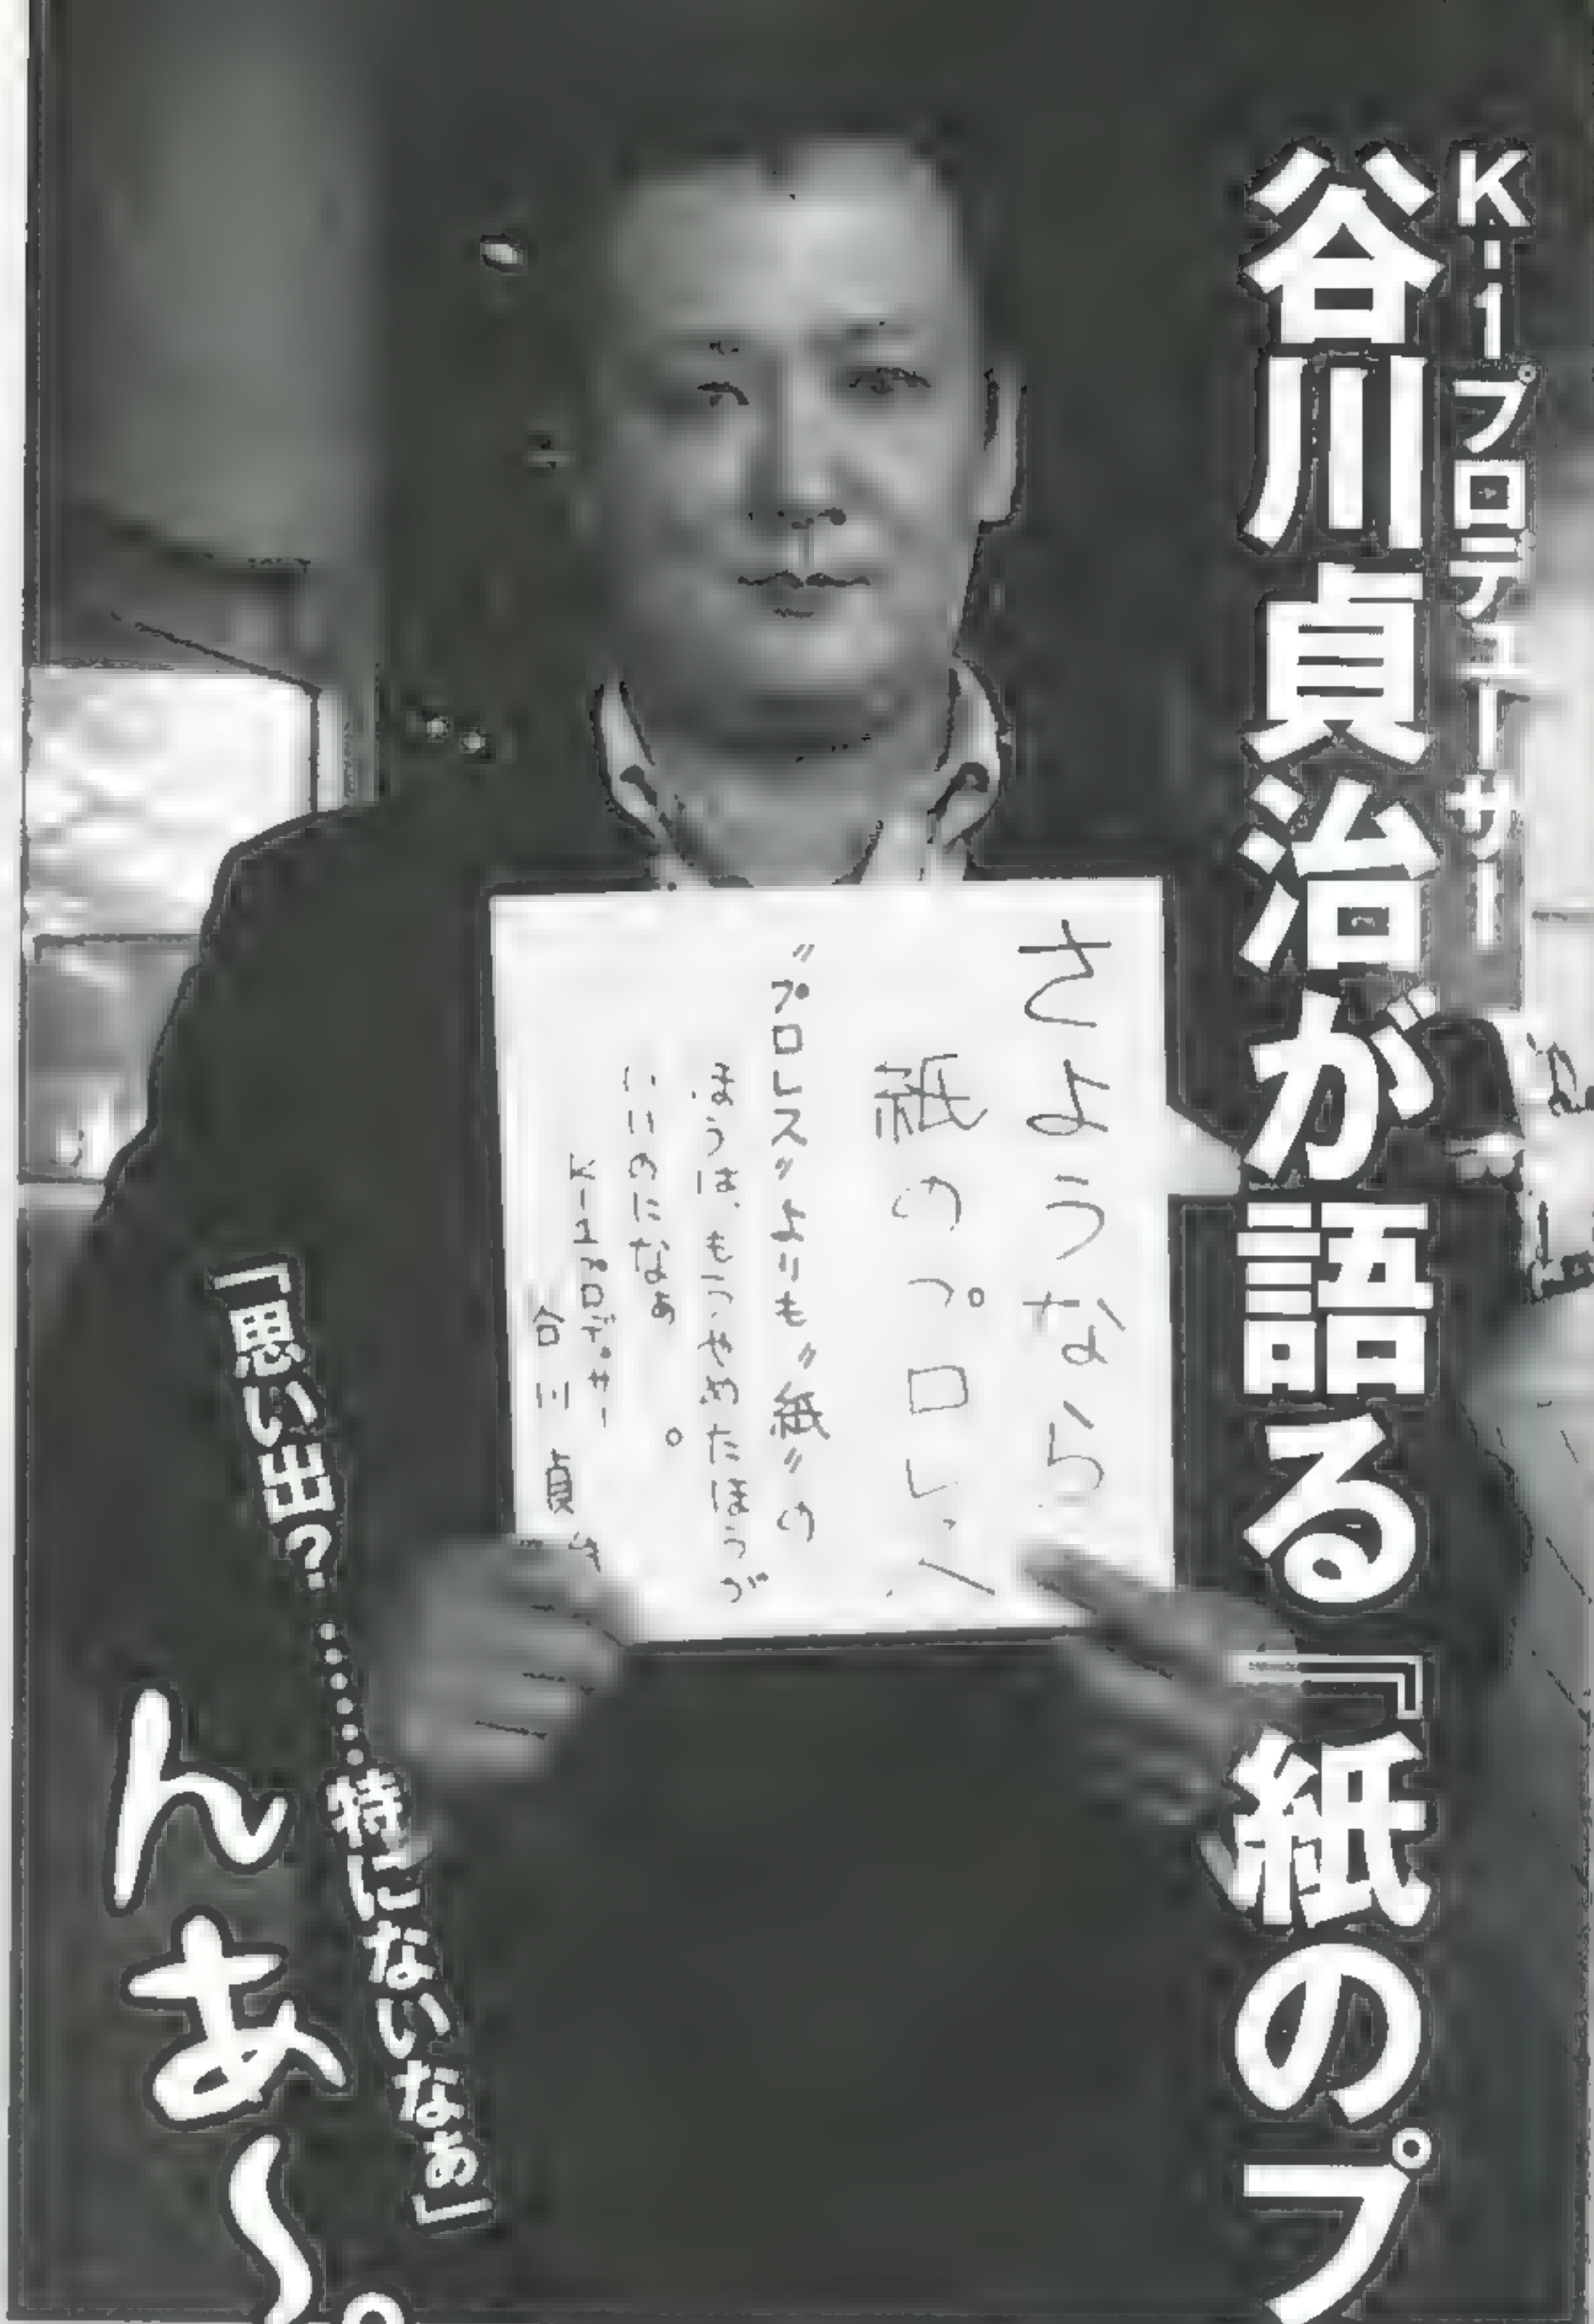 K-1プロデューサー
谷川貞治が語る『紙のプ
さようなら
紙のプロレス
"プロレス"よりも"紙"の
ほうは、もうやめたほうが
いいのになぁ。
K-1プロデューサー
谷川貞治
「思い出?……特にないなぁ」
んあ〜。